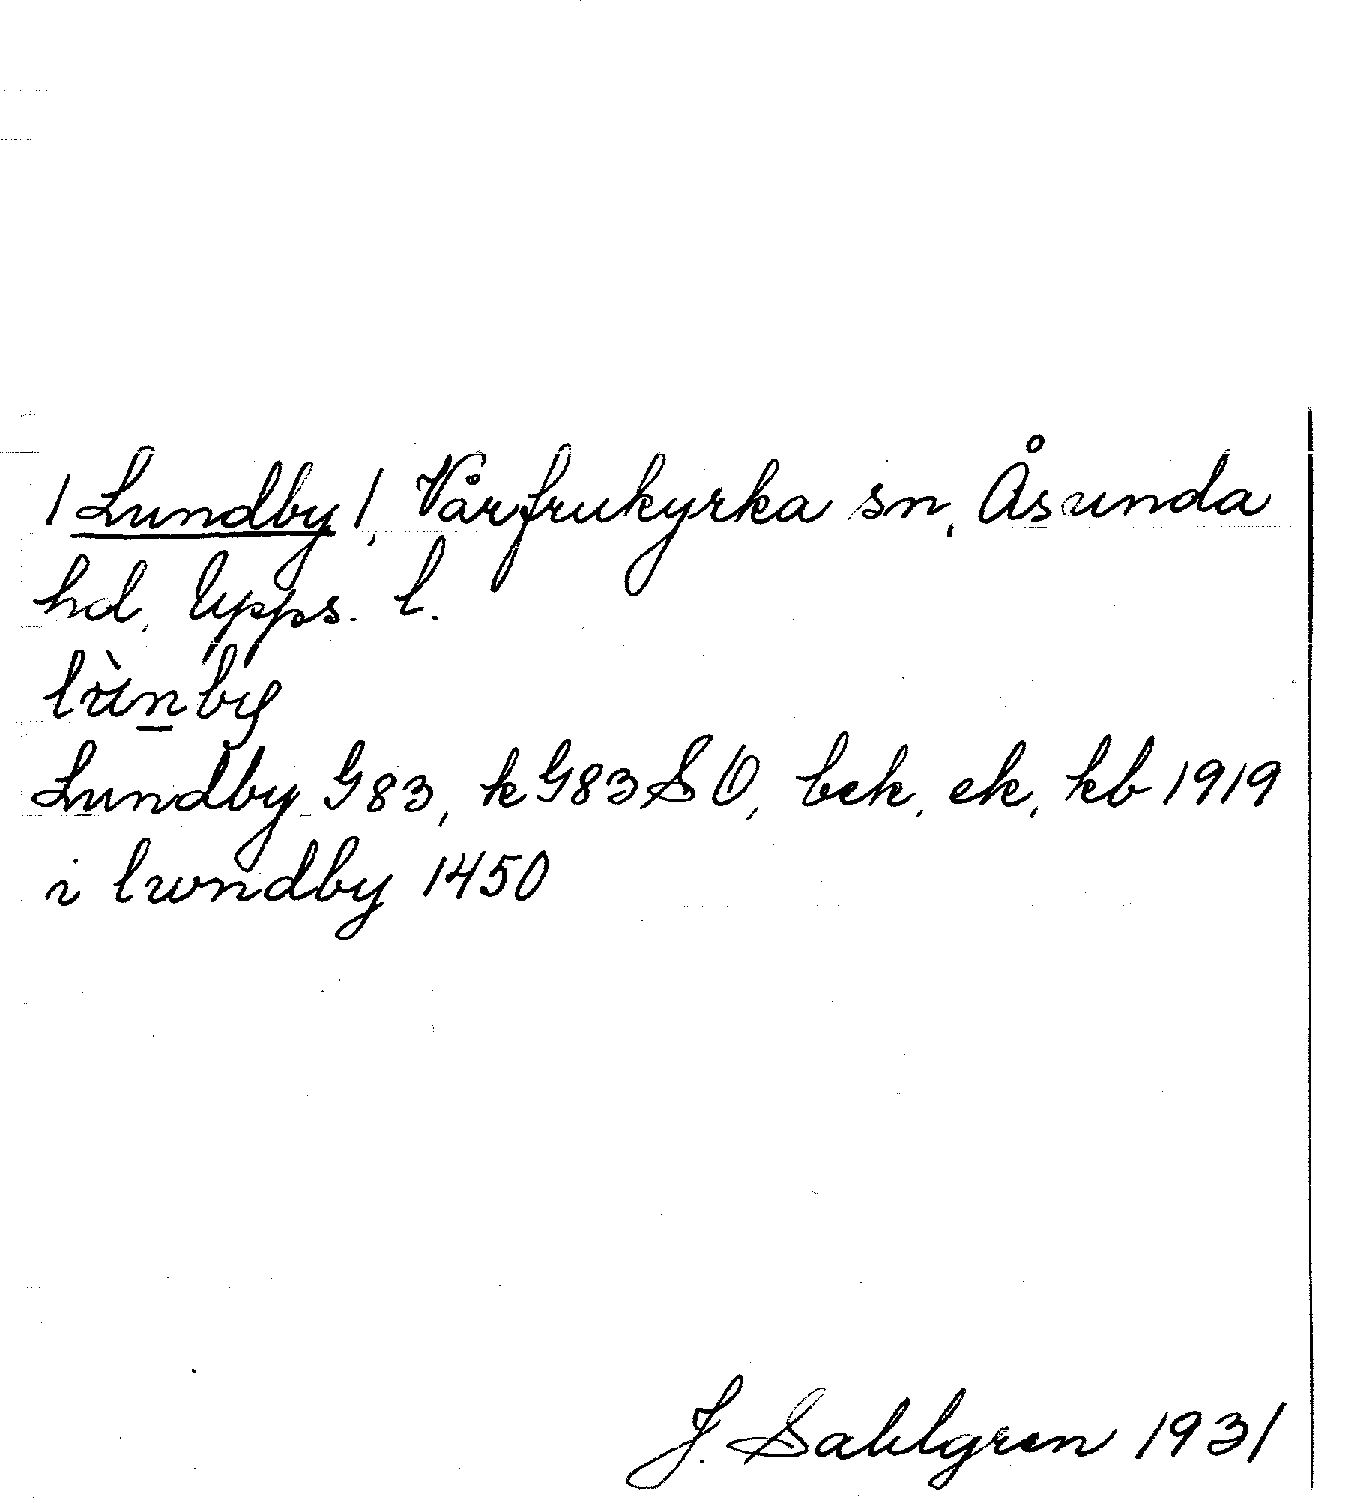 / Lundby /, Vårfrukyrka sn, Åsunda
hd, Upps. l.
lùnby
Lundby G83, k G83 S O, bek, ek, kb 1919
i lwndby 1450
J. Sahlgren 1931